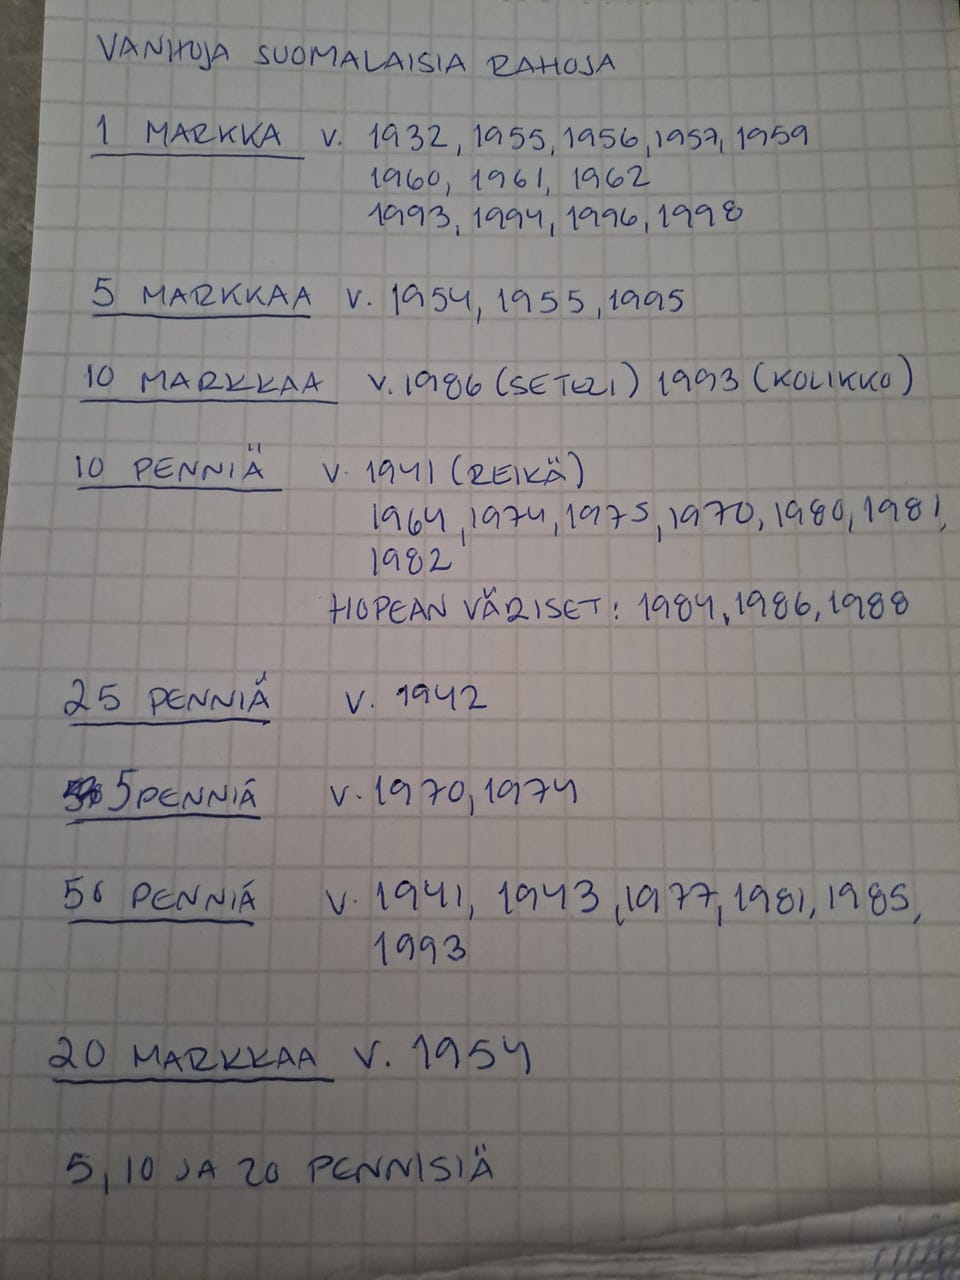 VANHOJA SUOMALAISIA RAHOJA
1 MARKKA v. 1932, 1955, 1956, 1957, 1959
1960, 1961, 1962
1993, 1994, 1996, 1998
5 MARKKAA v. 1954, 1955, 1995
10 MARKKAA v. 1986 (SETELI) 1993 (KOLIKKO)
10 PENNIÄ v. 1941 (REIKÄ)
1964, 1974, 1975, 1970, 1980, 1981,
1982
HOPEAN VÄRISET: 1984, 1986, 1988
25 PENNIÄ v. 1942
5 PENNIÄ v. 1970, 1974
50 PENNIÄ v. 1941, 1943, 1977, 1981, 1985,
1993
20 MARKKAA v. 1954
5, 10 JA 20 PENNISIÄ